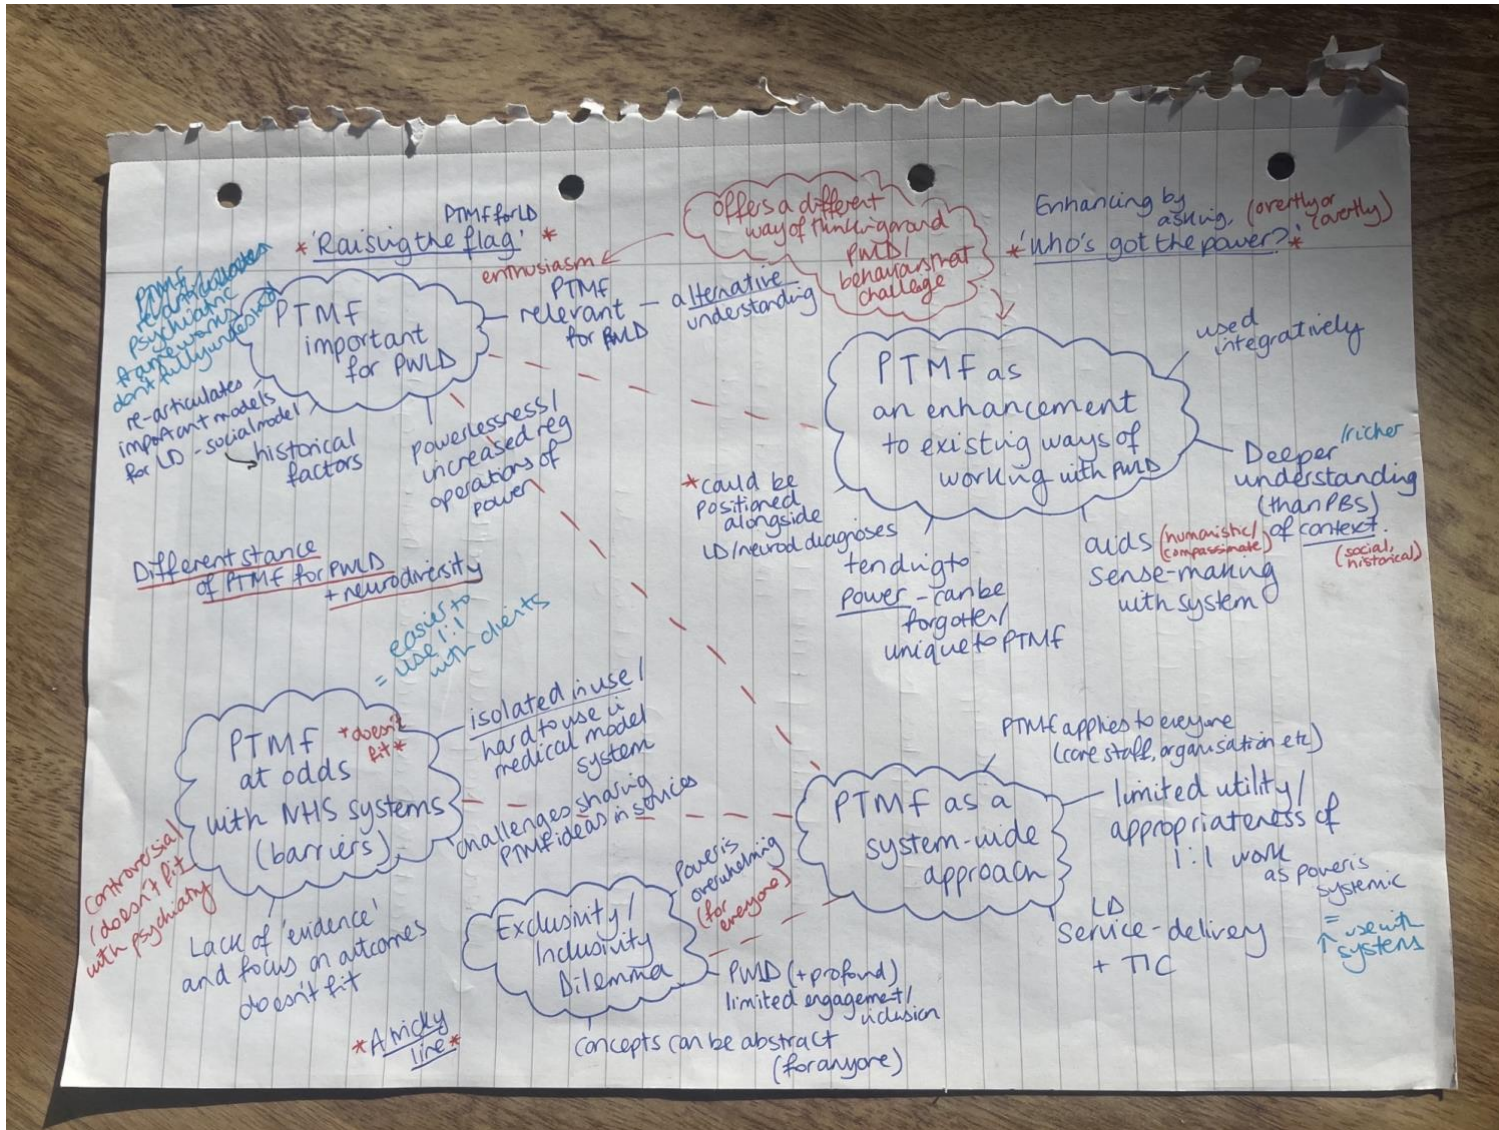 PTMF for LD
* 'Raising the flag' *
PTMF
re-articulates
psychiatric
frameworks
don't fully understand
PTMF
important
for PWLD
enthusiasm
PTMF
relevant
for PWLD
— alternative
understanding
re-articulates
important models
for LD - social model
historical
factors
powerlessness/
increased neg
operations of
power
offers a different
way of thinking around
PWLD/
behaviours that
challenge
Enhancing by
asking, (overtly or
covertly)
* 'Who's got the power?' *
PTMF as
an enhancement
to existing ways of
working with PWLD
used
integratively
Deeper /richer
understanding
(than PBS)
of context.
(social,
historical)
aids (humanistic/
compassionate)
sense-making
with system
* could be
positioned
alongside
LD/neurod diagnoses
tending to
power - can be
forgotten/
unique to PTMF
Different stance
of PTMF for PWLD
+ neurodiversity
= easier to
use 1:1
with clients
PTMF
at odds
with NHS systems
(barriers)
* doesn't
fit *
isolated in use/
hard to use in
medical model
system
challenges sharing
PTMF ideas in services
controversial
(doesn't fit
with psychiatry
Lack of 'evidence'
and focus on outcomes
doesn't fit
* A tricky
line *
Exclusivity/
Inclusivity
Dilemma
Power is
overwhelming
(for
everyone)
PWLD (+ profound)
limited engagement/
inclusion
concepts can be abstract
(for anyone)
PTMF as a
system-wide
approach
PTMF applies to everyone
(care staff, organisation etc)
limited utility/
appropriateness of
1:1 work
as power is
systemic
= use with
↑ systems
LD
service-delivery
+ TIC